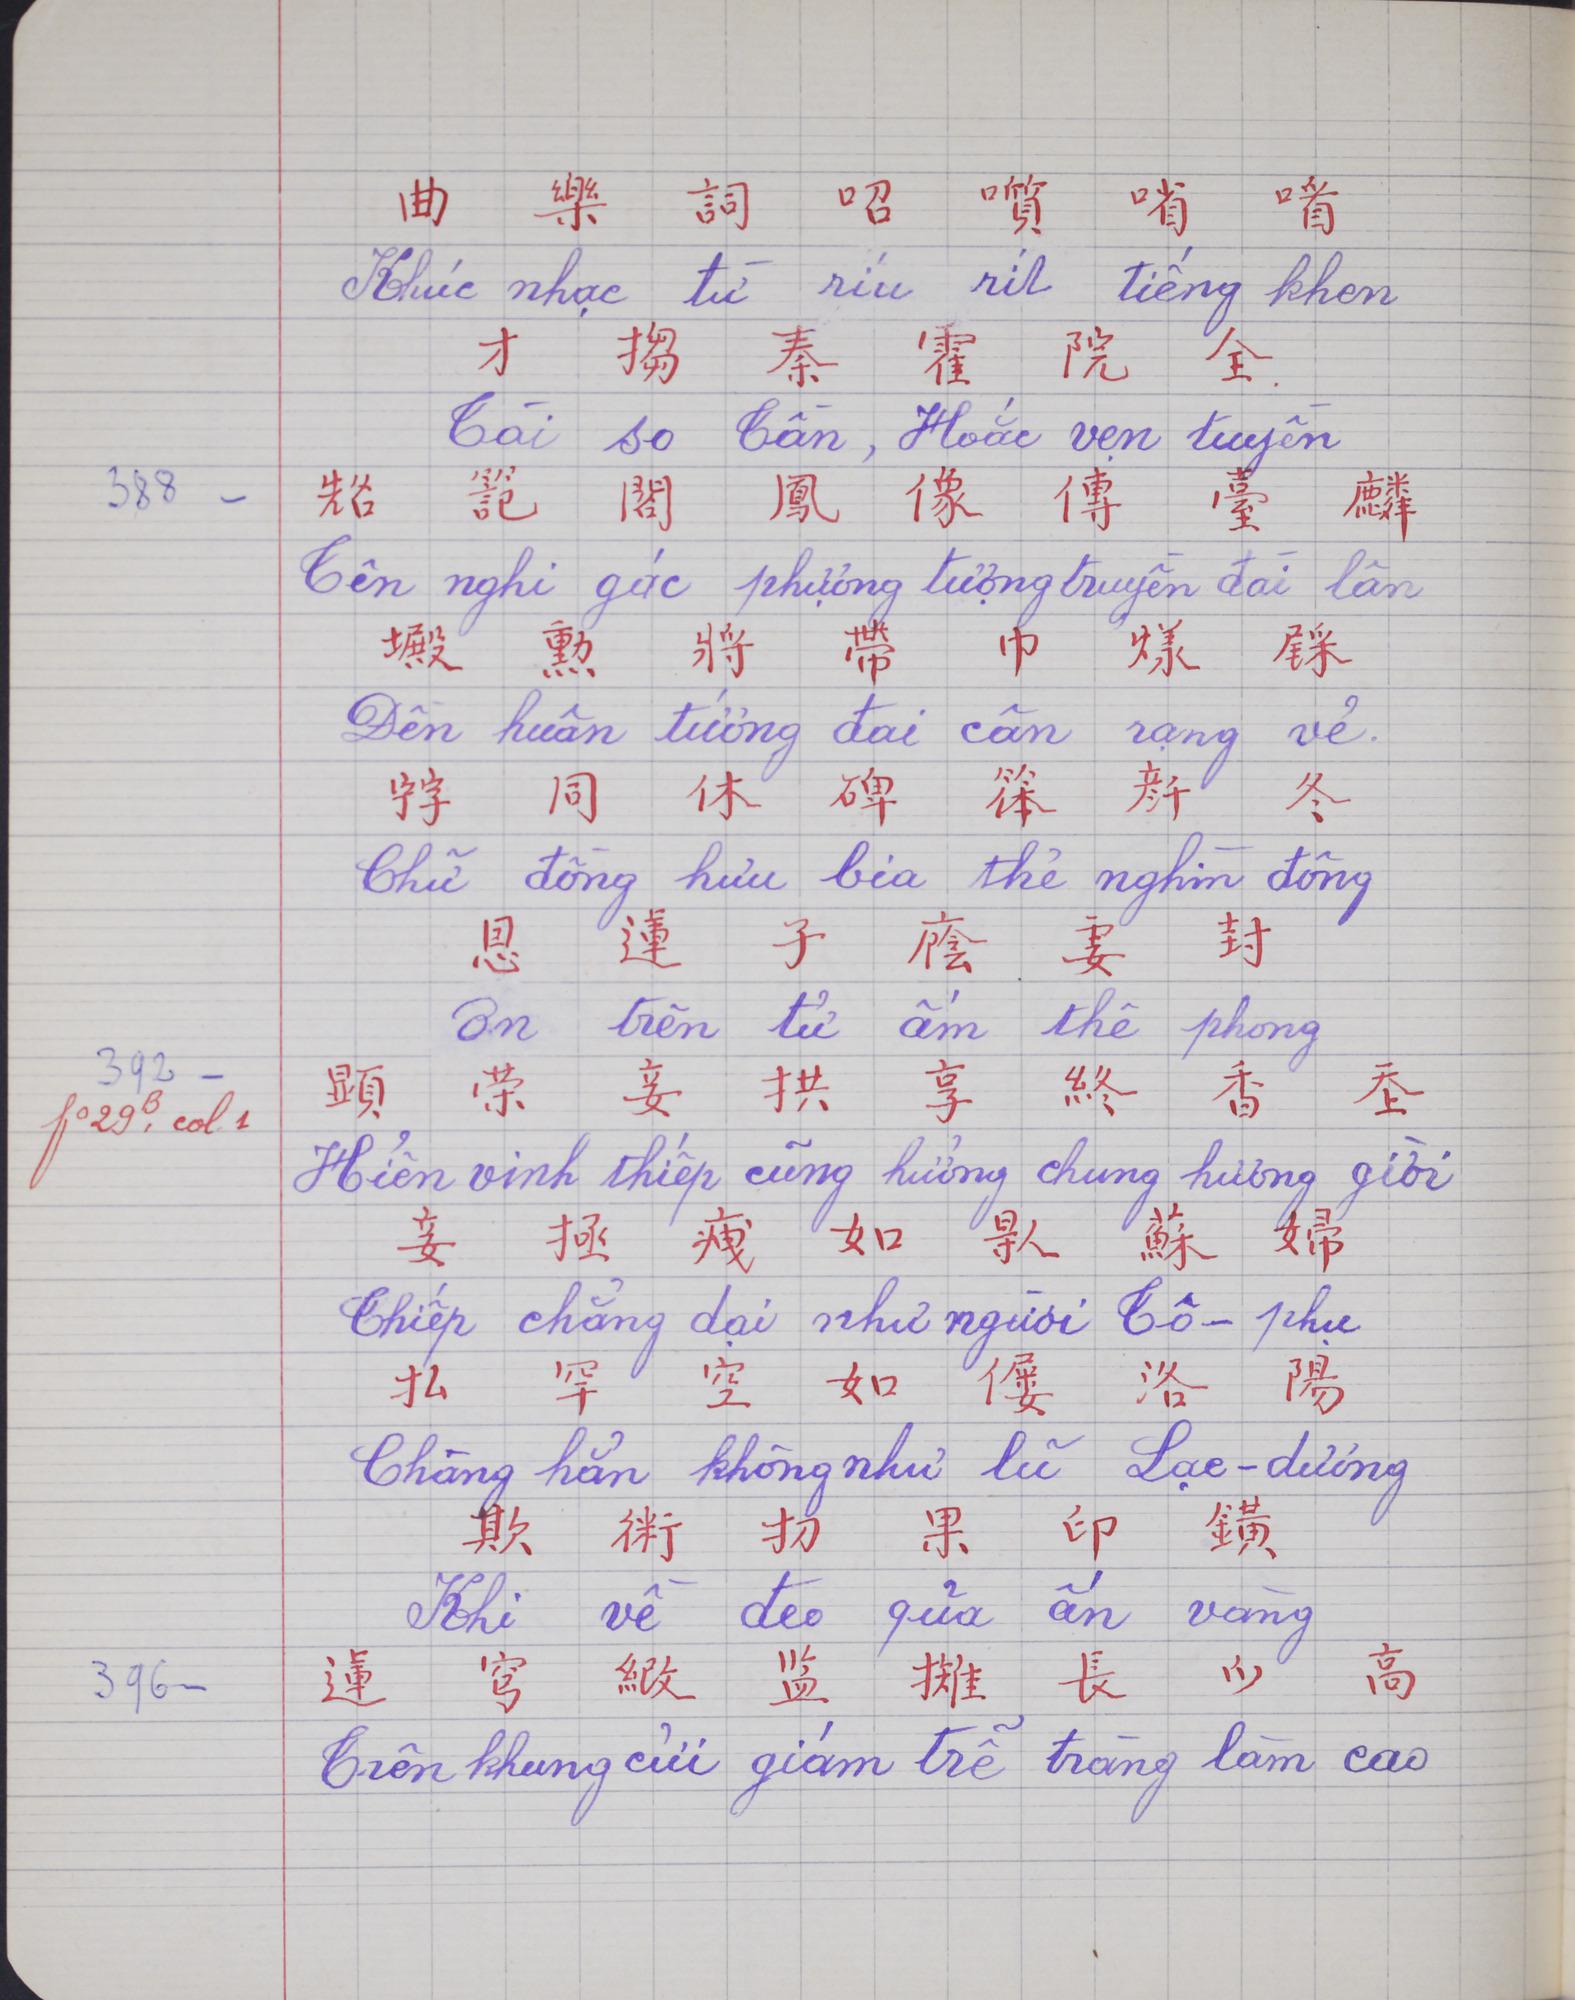 曲 樂 詞 𠰉 嚍 㗂 𠸦
Khúc nhạc từ ríu rít tiếng khen
才 搊 秦 霍 院 全
Tài so Tần, Hoắc vẹn tuyền
388 – 閣 鳳 像 傳 臺 麟
Tên nghi gác phượng tượng truyền đài lân
勳 將 帶 巾 㨾
Đền huân tướng đai cân rạng vẻ.
同 休 碑 冬
Chữ đồng hưu bia thẻ nghìn đông
恩 蓮 子 廕 妻 封
Ơn trên tử ấm thê phong
392 – 顕 荣 妾 拱 享 終 香 𡗶
fº 29B, col. 1
Hiển vinh thiếp cũng hưởng chung hương giời
妾 拯 𤵺 如 𠊛 蘇 婦
Thiếp chẳng dại như người Tô-phụ
払 罕 空 如 僂 洛 陽
Chàng hẳn không như lũ Lạc-dương
欺 術 扨 果 印 鐄
Khi về đeo quả ấn vàng
396 – 蓮 監 長 高
Trên khung cửi giám trễ tràng làm cao